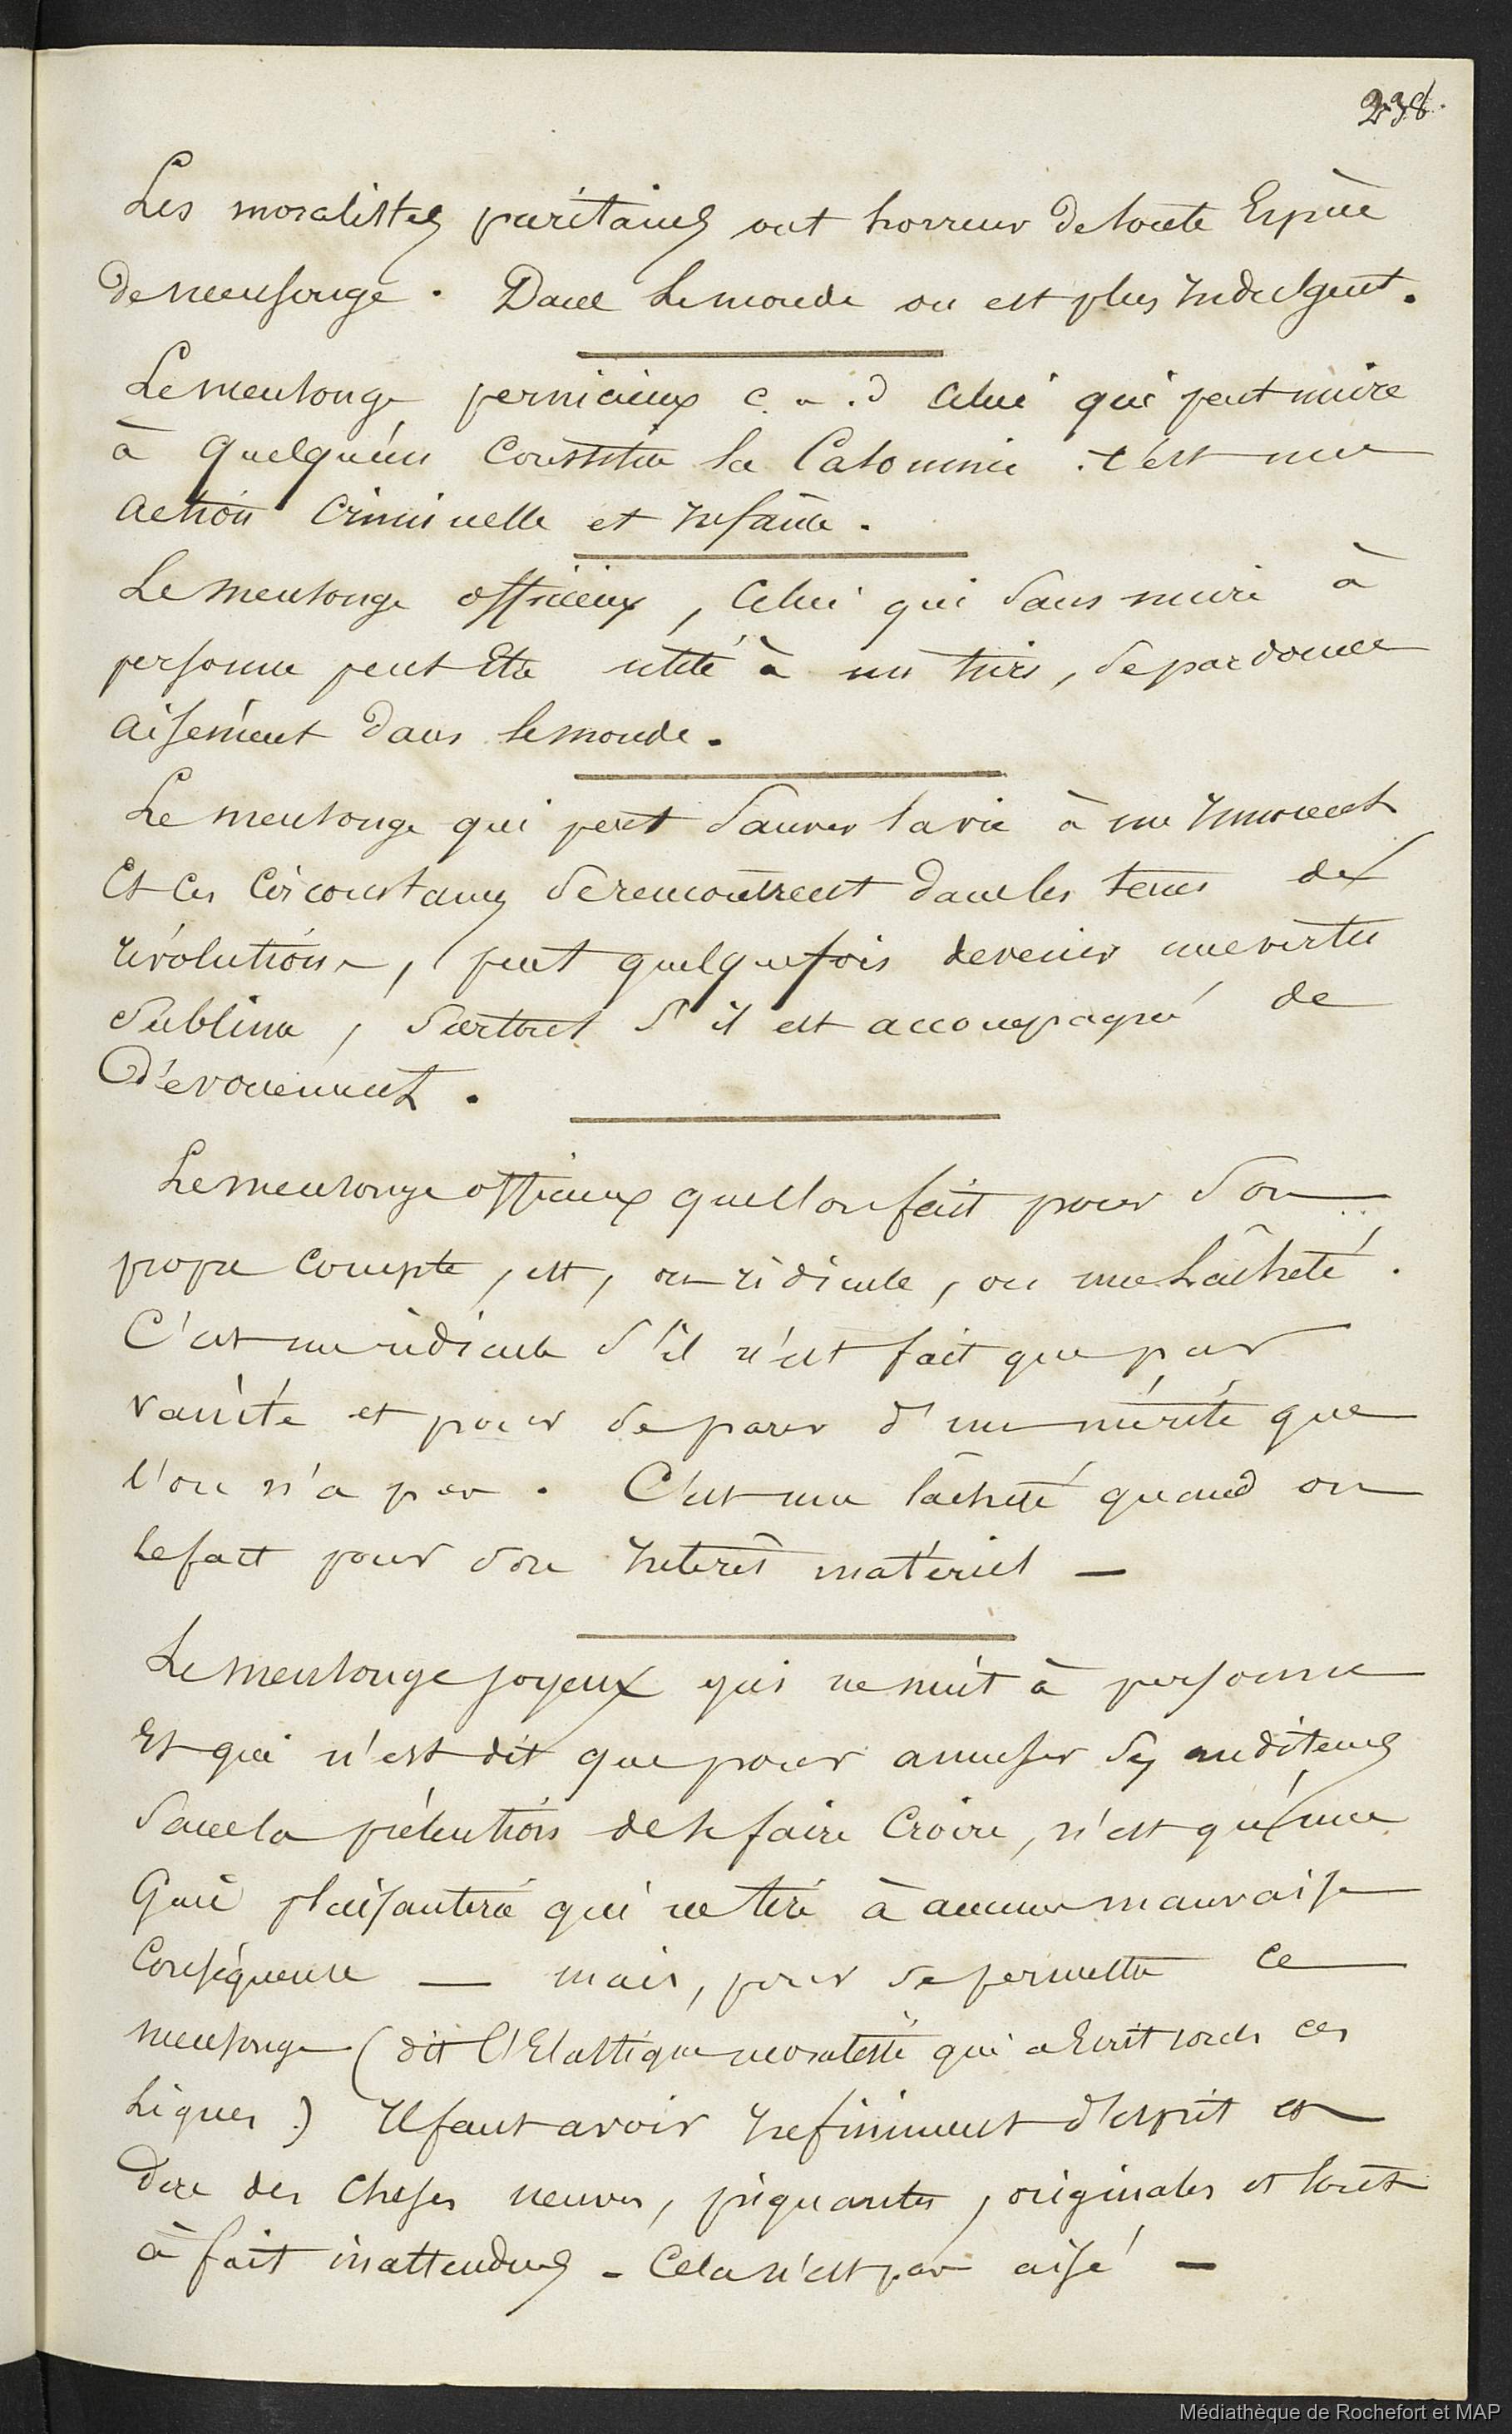 238.
Les moralistes puritains ont horreur de toute Espèce
de mensonge. Dans le monde on est plus Indulgent.
Le mensonge pernicieux c. a. d celui qui peut nuire
à quelqu'un constitue la Calomnie : c'est une
action criminelle et Infâme.
Le mensonge officieux, celui qui sans nuire à
personne peut Etre utile à un tiers, se pardonne
aisément dans le monde.
Le mensonge qui peut sauver la vie à un Innocent
Et ces circonstances se rencontrent dans les tems de
révolutions, peut quelquefois devenir une vertu
sublime, surtout s'il est accompagné de
Dévouement.
Le mensonge officieux que l'on fait pour son
propre compte, est, un ridicule, ou une Lâcheté.
C'est un ridicule s'il n'est fait que par
vanité et pour se parer d'un mérite que
l'on n'a pas. C'est une lâcheté quand on
le fait pour son Intérêt matériel —
Le mensonge joyeux qui ne nuit à personne
Et qui n'est dit que pour amuser ses auditeurs
sans la prétention de le faire croire, n'est qu'une
Gaie plaisanterie qui ne tire à aucune mauvaise
conséquence — mais, pour se permettre ce
mensonge (dit l'Elastique moraliste qui a Ecrit toutes ces
Lignes) Il faut avoir Infiniment d'esprit et
dire des choses neuves, piquantes, originales et tout
à fait inattendues - Cela n'est pas aisé —
Médiathèque de Rochefort et MAP